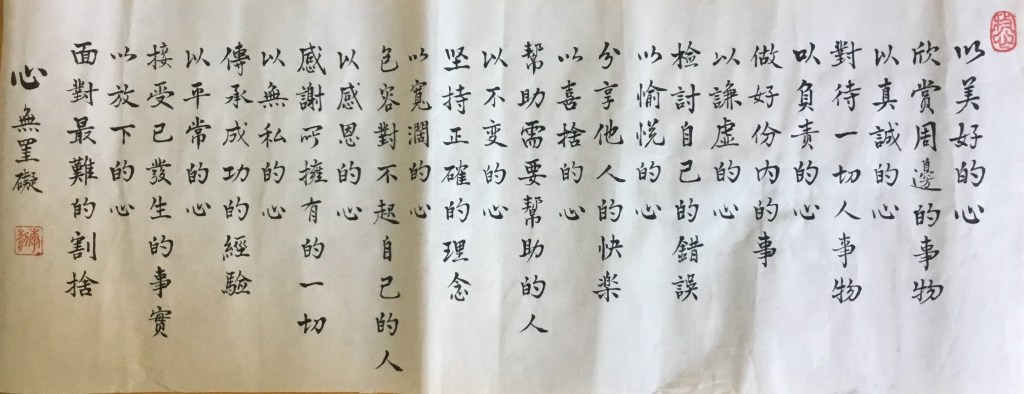 以美好的心
欣赏周邊的事物
以真誠的心
對待一切人事物
以負責的心
做好份内的事
以謙虛的心
檢討自己的錯誤
以愉悅的心
分享他人的快楽
以喜捨的心
幫助需要幫助的人
以不变的心
坚持正確的理念
以寬濶的心
包容對不起自己的人
以感恩的心
感謝所擁有的一切
以無私的心
傳承成功的經驗
以平常的心
接受已發生的事實
以放下的心
面對最難的割捨
心無罣礙